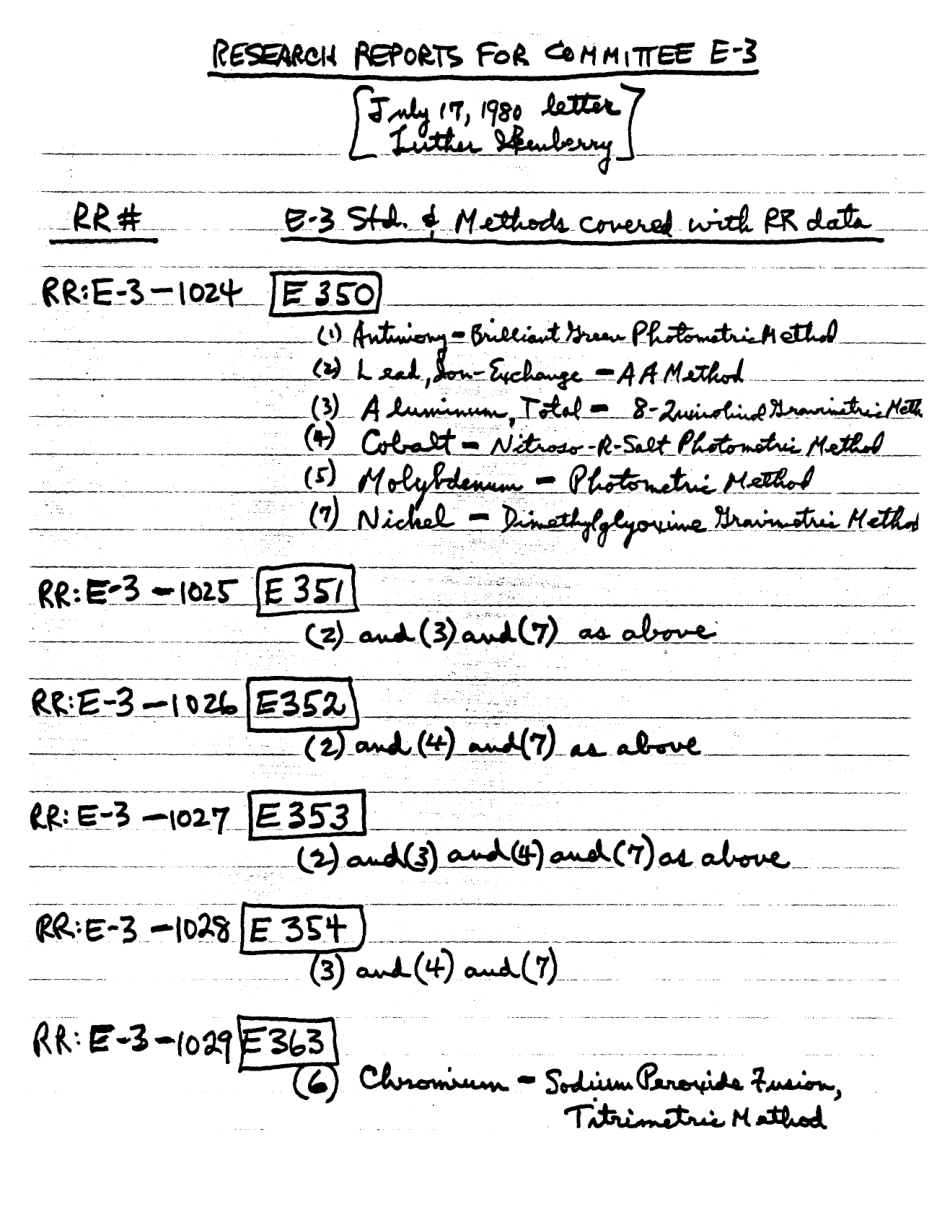 RESEARCH REPORTS FOR COMMITTEE E-3
[July 17, 1980 letter
Luther Ikenberry]
RR # E-3 Std. & Methods covered with RR data
RR:E-3-1024 E 350
(1) Antimony - Brilliant Green Photometric Method
(2) Lead, Ion-Exchange - AA Method
(3) Aluminum, Total - 8-Quinolinol Gravimetric Meth
(4) Cobalt - Nitroso-R-Salt Photometric Method
(5) Molybdenum - Photometric Method
(7) Nickel - Dimethylglyoxime Gravimetric Method
RR:E-3-1025 E 351
(2) and (3) and (7) as above
RR:E-3-1026 E352
(2) and (4) and (7) as above
RR:E-3-1027 E353
(2) and (3) and (4) and (7) as above
RR:E-3-1028 E 354
(3) and (4) and (7)
RR:E-3-1029 E363
(6) Chromium - Sodium Peroxide Fusion,
Titrimetric Method